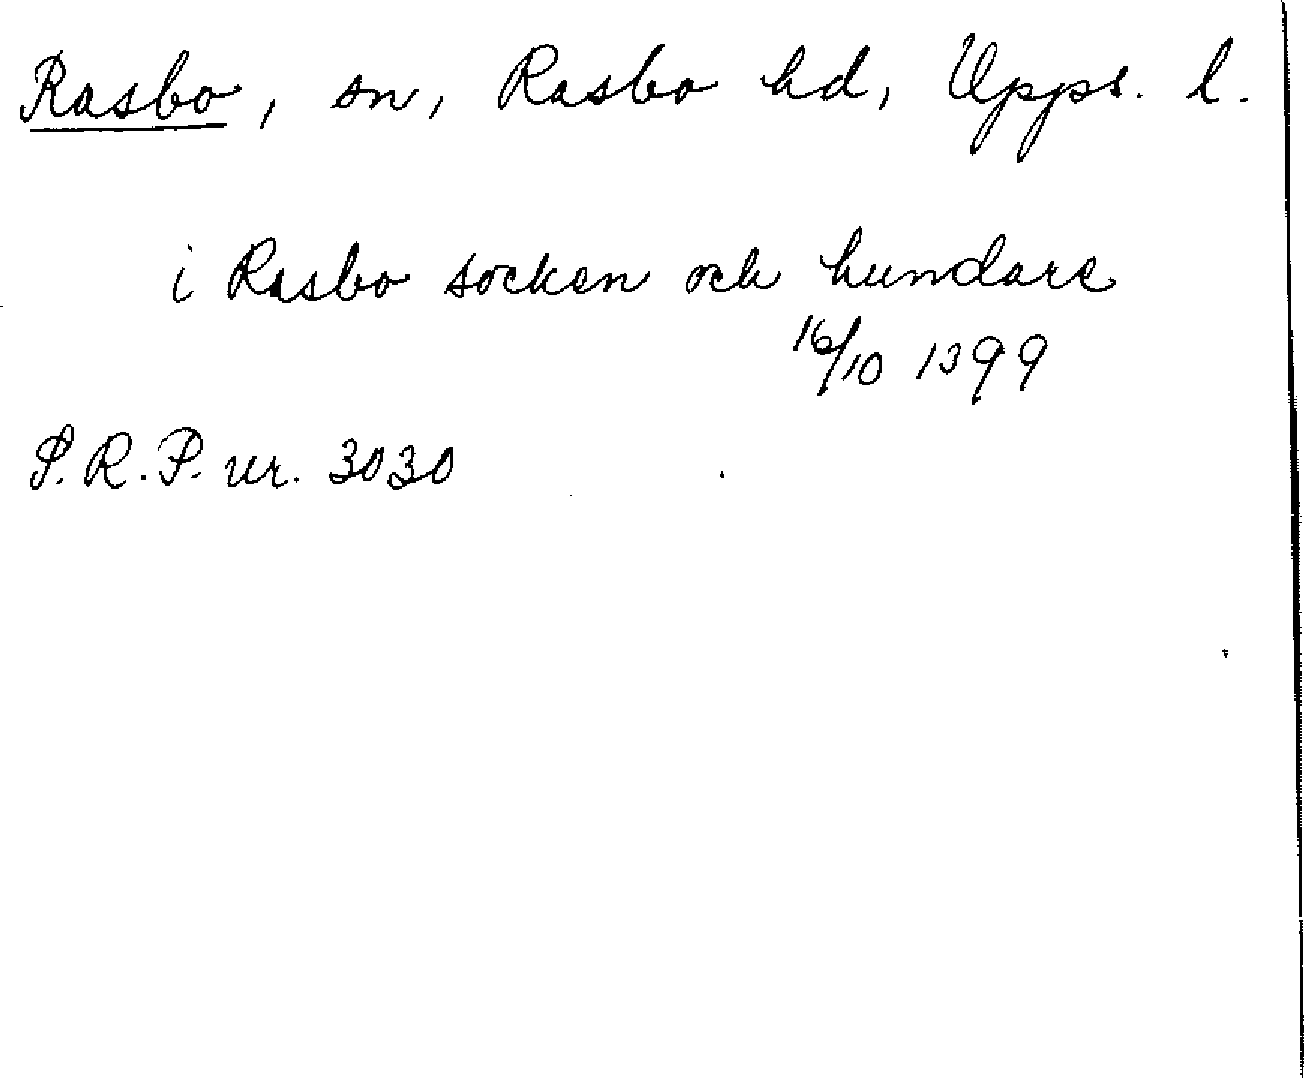 Rasbo, sn, Rasbo hd, Upps. l.
i Rasbo socken och hundare
16/10 1399
S.R.P. nr. 3030